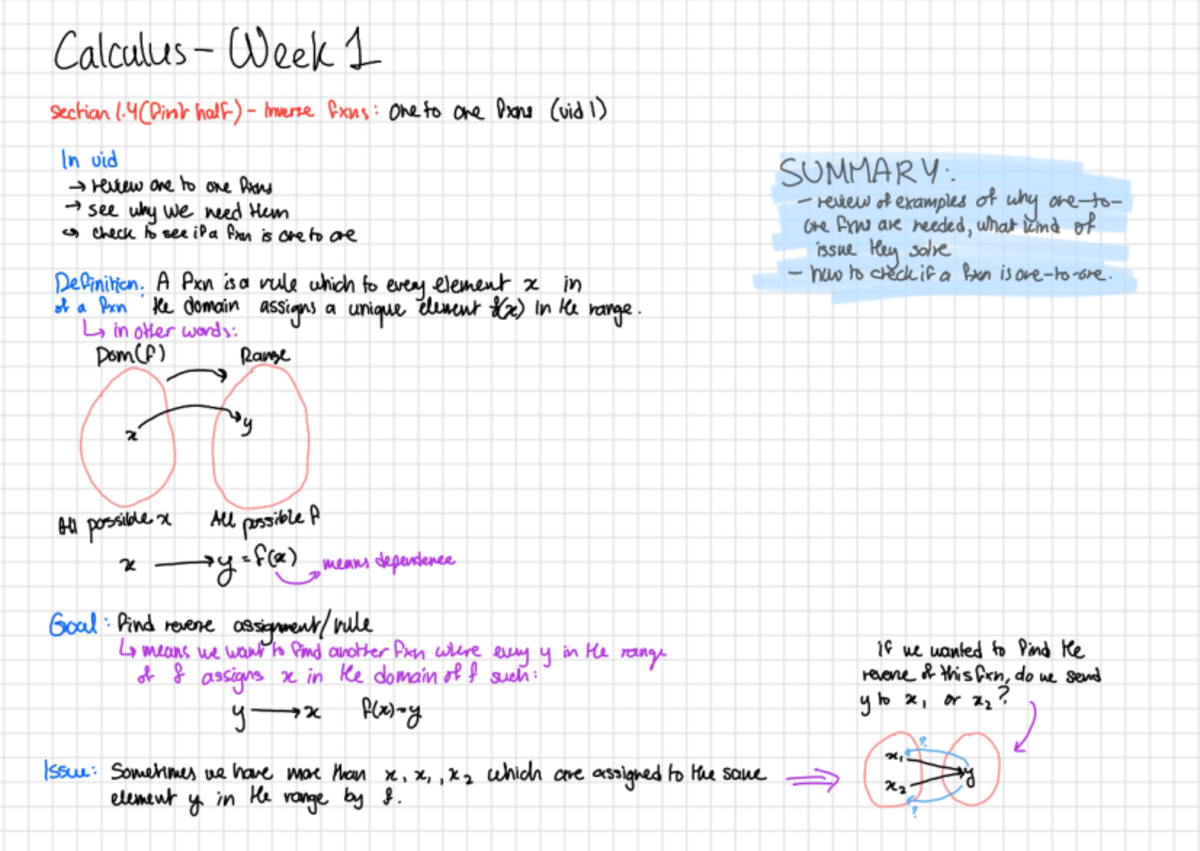 Calculus - Week 1
section 1.4 (first half) - Inverse fxns: one to one fxns (vid 1)
In vid
→ review one to one fxns
→ see why we need them
↳ check to see if a fxn is one to one
SUMMARY:
- review of examples of why one-to-
one fxns are needed, what kind of
issue they solve
- how to check if a fxn is one-to-one.
Definition: A fxn is a rule which to every element x in
of a fxn the domain assigns a unique element f(x) in the range.
↳ in other words:
Dom(f) Range
x y
All possible x All possible f
x → y = f(x) means dependence
Goal: find reverse assignment/rule
↳ means we want to find another fxn where every y in the range
of f assigns x in the domain of f such:
y → x f(x)=y
if we wanted to find the
reverse of this fxn, do we send
y to x₁ or x₂?
Issue: Sometimes we have more than x, x₁, x₂ which are assigned to the same
element y in the range by f.
?
x₁
y
x₂
?